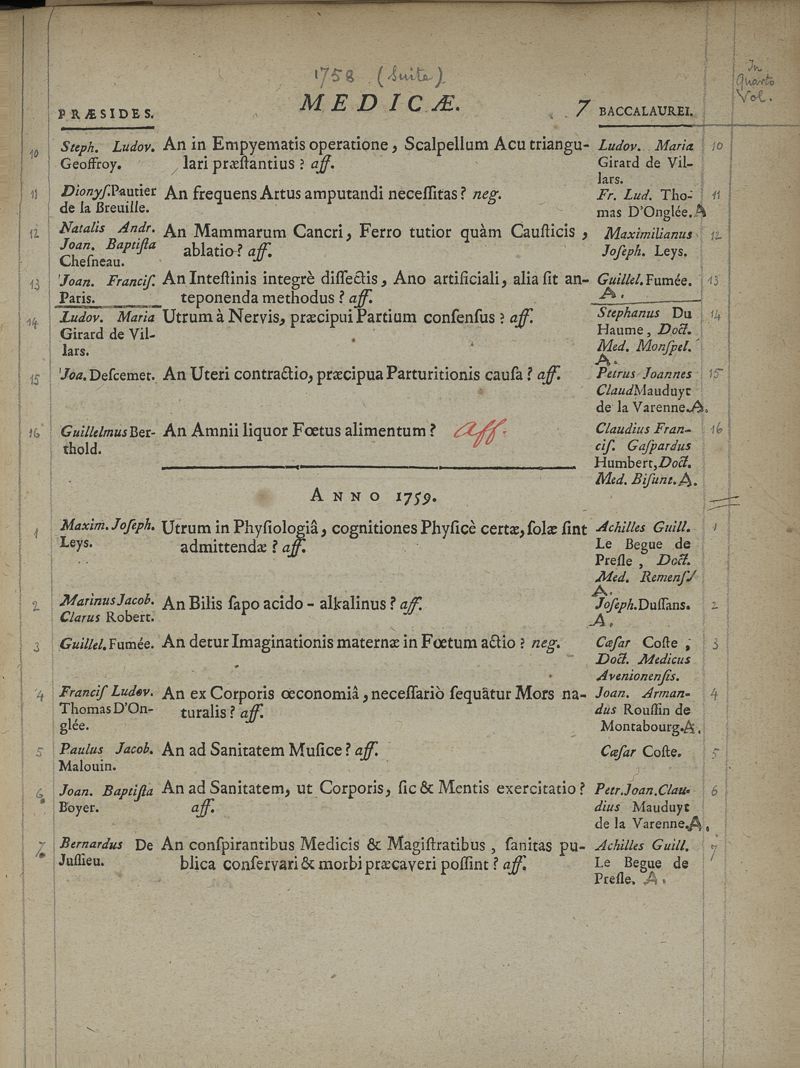 1758 (Suite)
In
Quarto
Vol.
PRÆSIDES. MEDICÆ. 7 BACCALAUREI.
10 Steph. Ludov. An in Empyematis operatione, Scalpellum Acu triangu- Ludov. Maria 10
Geoffroy. lari præſtantius ? aff. Girard de Vil-
lars.
11 Dionyſ. Pautier An frequens Artus amputandi neceſſitas ? neg. Fr. Lud. Tho- 11
de la Breuille. mas D'Onglée. A
12 Natalis Andr. An Mammarum Cancri, Ferro tutior quàm Cauſticis, Maximilianus 12
Joan. Baptiſta ablatio ? aff. Joſeph. Leys.
Cheſneau.
13 Joan. Franciſ. An Inteſtinis integrè diſſectis, Ano artificiali, alia ſit an- Guillel. Fumée. 13
Paris. teponenda methodus ? aff. A.
14 Ludov. Maria Utrum à Nervis, præcipui Partium conſenſus ? aff. Stephanus Du 14
Girard de Vil- Haume, Doct.
lars. Med. Monſpel.
A.
15 Joa. Deſcemet. An Uteri contractio, præcipua Parturitionis cauſa ? aff. Petrus Joannes 15
Claud Mauduyt
de la Varenne. A.
16 Guillelmus Ber- An Amnii liquor Fœtus alimentum ? aff. Claudius Fran- 16
thold. ciſ. Gaſpardus
Humbert, Doct.
Med. Biſunt. A.
ANNO 1759.
1 Maxim. Joſeph. Utrum in Phyſiologiâ, cognitiones Phyſicè certæ, ſolæ ſint Achilles Guill. 1
Leys. admittendæ ? aff. Le Begue de
Preſle, Doct.
Med. Remenſ.
A.
2 Marinus Jacob. An Bilis ſapo acido-alkalinus ? aff. Joſeph. Duſſans. 2
Clarus Robert. A.
3 Guillel. Fumée. An detur Imaginationis maternæ in Fœtum actio ? neg. Cæſar Coſte, 3
Doct. Medicus
Avenionenſis.
4 Franciſ Ludov. An ex Corporis œconomiâ, neceſſariò ſequātur Mors na- Joan. Arman- 4
Thomas D'On- turalis ? aff. dus Rouſſin de
glée. Montabourg. A.
5 Paulus Jacob. An ad Sanitatem Muſice ? aff. Cæſar Coſte. 5
Malouin.
6 Joan. Baptiſta An ad Sanitatem, ut Corporis, ſic & Mentis exercitatio ? Petr. Joan. Clau- 6
Boyer. aff. dius Mauduyt
de la Varenne. A.
7 Bernardus De An conſpirantibus Medicis & Magiſtratibus, ſanitas pu- Achilles Guill. 7
Juſſieu. blica conſervari & morbi præcaveri poſſint ? aff. Le Begue de
Preſle. A.